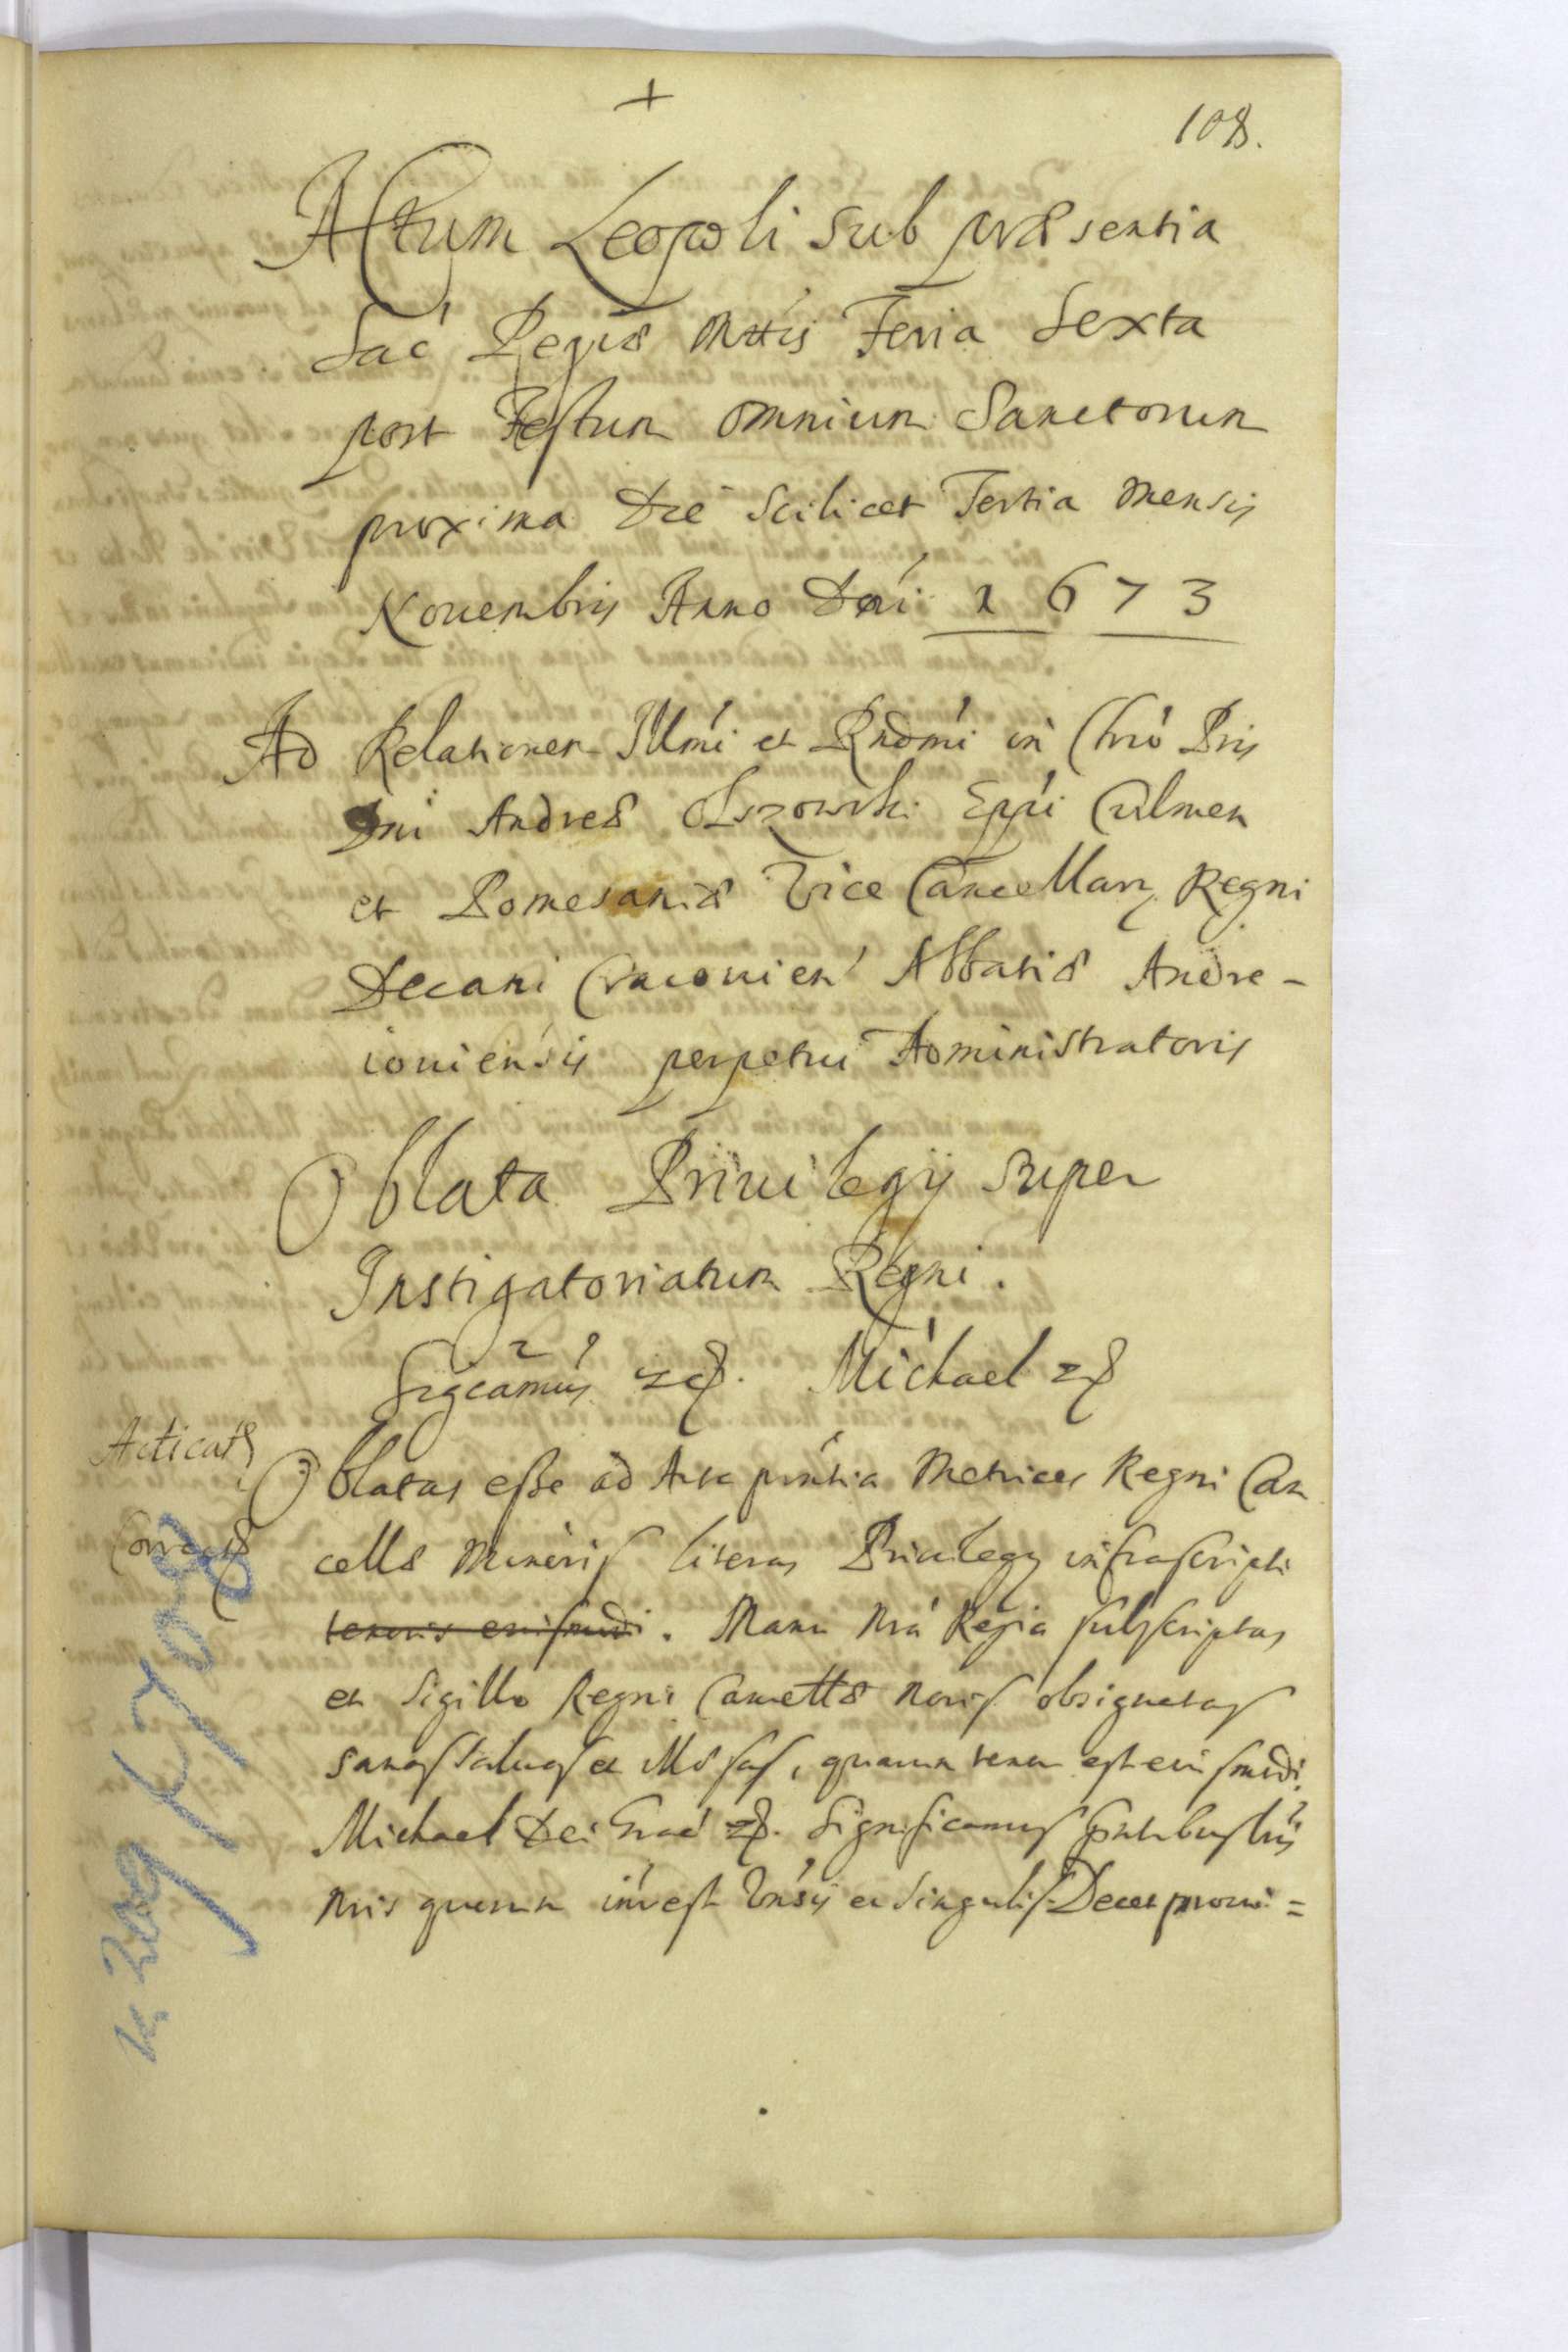 +
108.
Actum Leopoli sub præsentia
Sac Regiæ Mttis Feria Sexta
post Festum omnium Sanctorum
proxima Die Scilicet Tertia Mensis
Nouembris Anno Dni 1673
Ad Relationem Illmi et Rndmi in Chro Pris
Dni Andreæ Olszowski Eppi Culmen
et Pomesaniæ Vice Cancellarij Regni
Decani Cracouien Abbatiæ Andre-
iouiensis perpetui Administratoris
Oblata Priuilegij super
Instigatoriatum Regni.
Sigcamus etc. Michael etc
Acticat
Oblatas esse ad Acta prntia Metrices Regni Can
Correct
cellæ Minoris literas Priuilegij infrascripti
tenoris eiusmodi. Manu Nra Regia subscriptas
et Sigillo Regni Cancellæ Noris obsignatas
sanas saluas et illæsas, quarum tenor est eiusmodi.
Michael Dei Grac etc. Significamus prntibus lris
Nris quorum intrest Vnsis et Singulis Decet proui=
K 708
K. 209